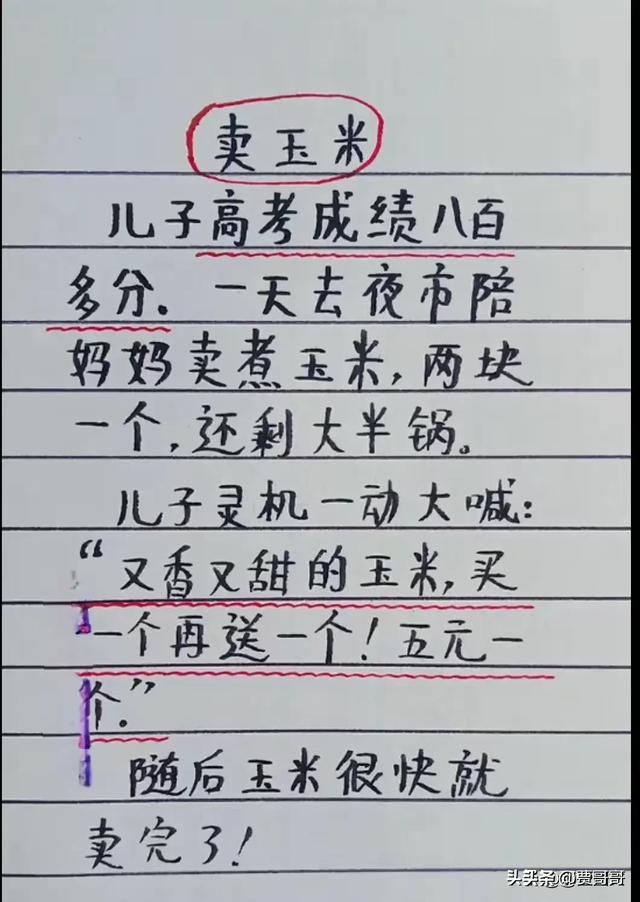 卖玉米
儿子高考成绩八百
多分。一天去夜市陪
妈妈卖煮玉米,两块
一个,还剩大半锅。
儿子灵机一动大喊:
“又香又甜的玉米,买
一个再送一个!五元一
个。”
随后玉米很快就
卖完了!
头头条@贾哥哥